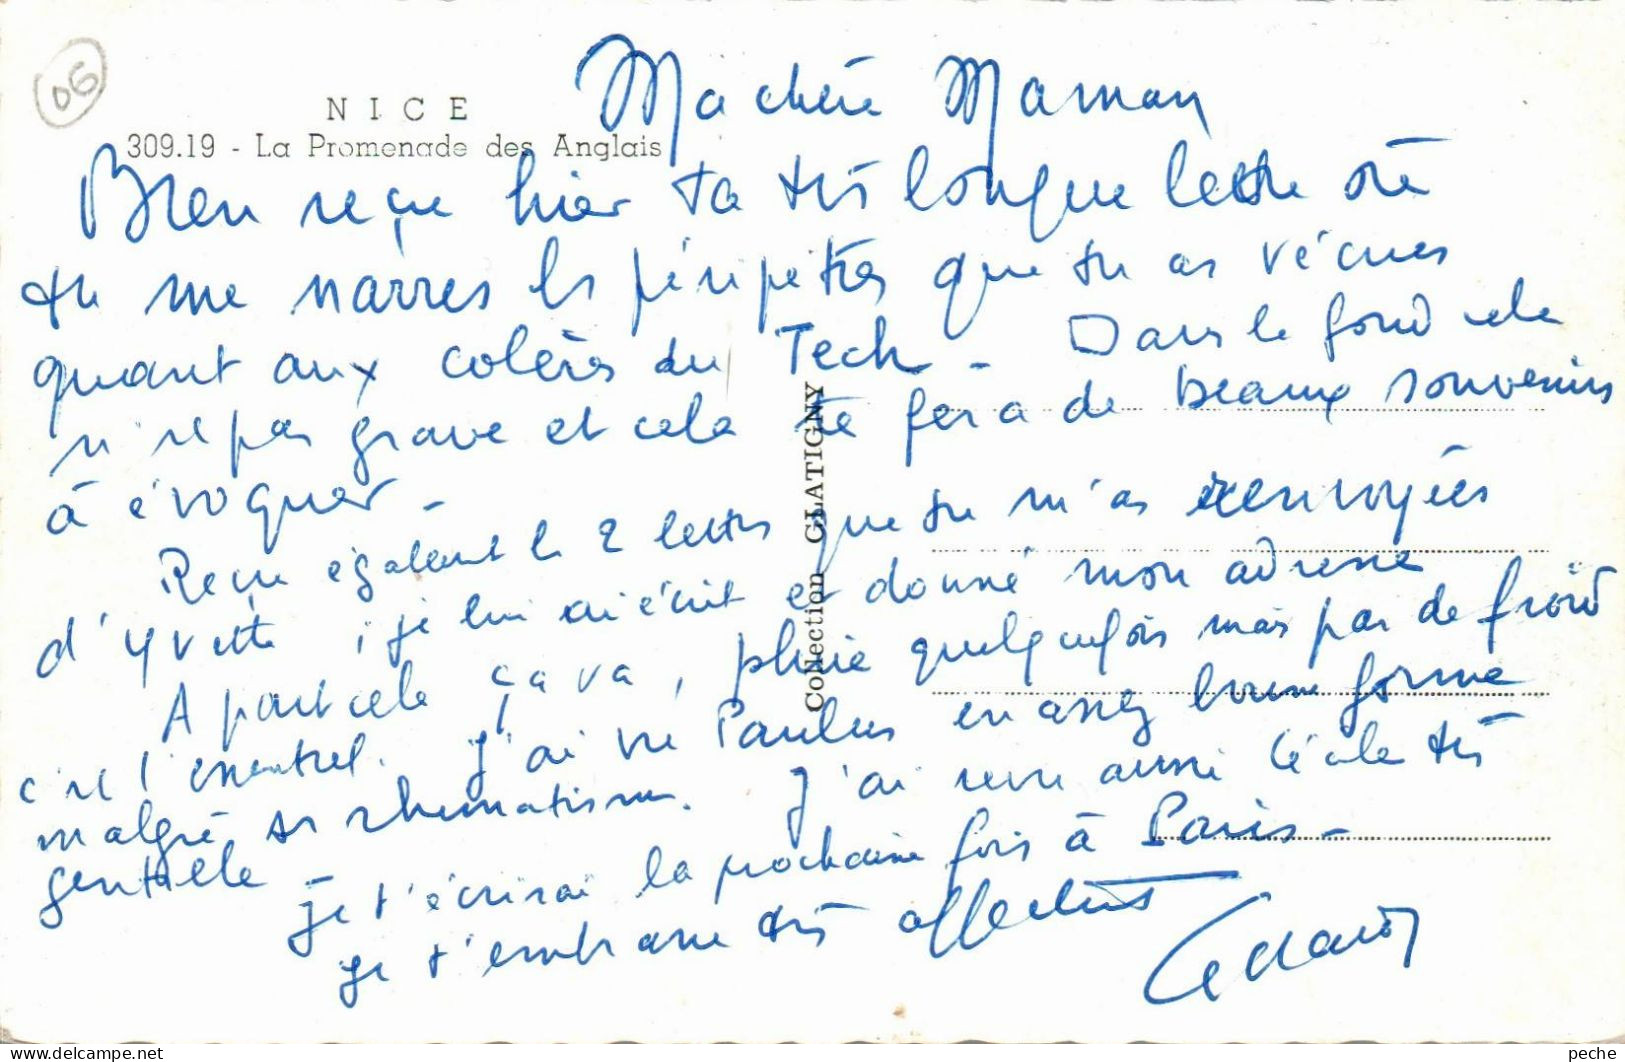 06
NICE
309.19 - La Promenade des Anglais
Collection GLATIGNY
Ma chère Maman
Bien reçu hier ta très longue lettre où
tu me narres les péripéties que tu as vécues
quant aux colères du Tech - Dans le fond cela
n'est pas grave et cela te fera de beaux souvenirs
à évoquer -
Reçu également les 2 lettres que tu m'as renvoyées
d'Yvette, je lui ai écrit et donné mon adresse
A part cela ça va, pluie quelquefois mais pas de froid
c'est l'essentiel. J'ai vu Paulus en assez bonne forme
malgré ses rhumatismes. J'ai revu aussi Cécile très
gentille -
Je t'écrirai la prochaine fois à Paris -
Je t'embrasse très affect
delcampe.net
peche